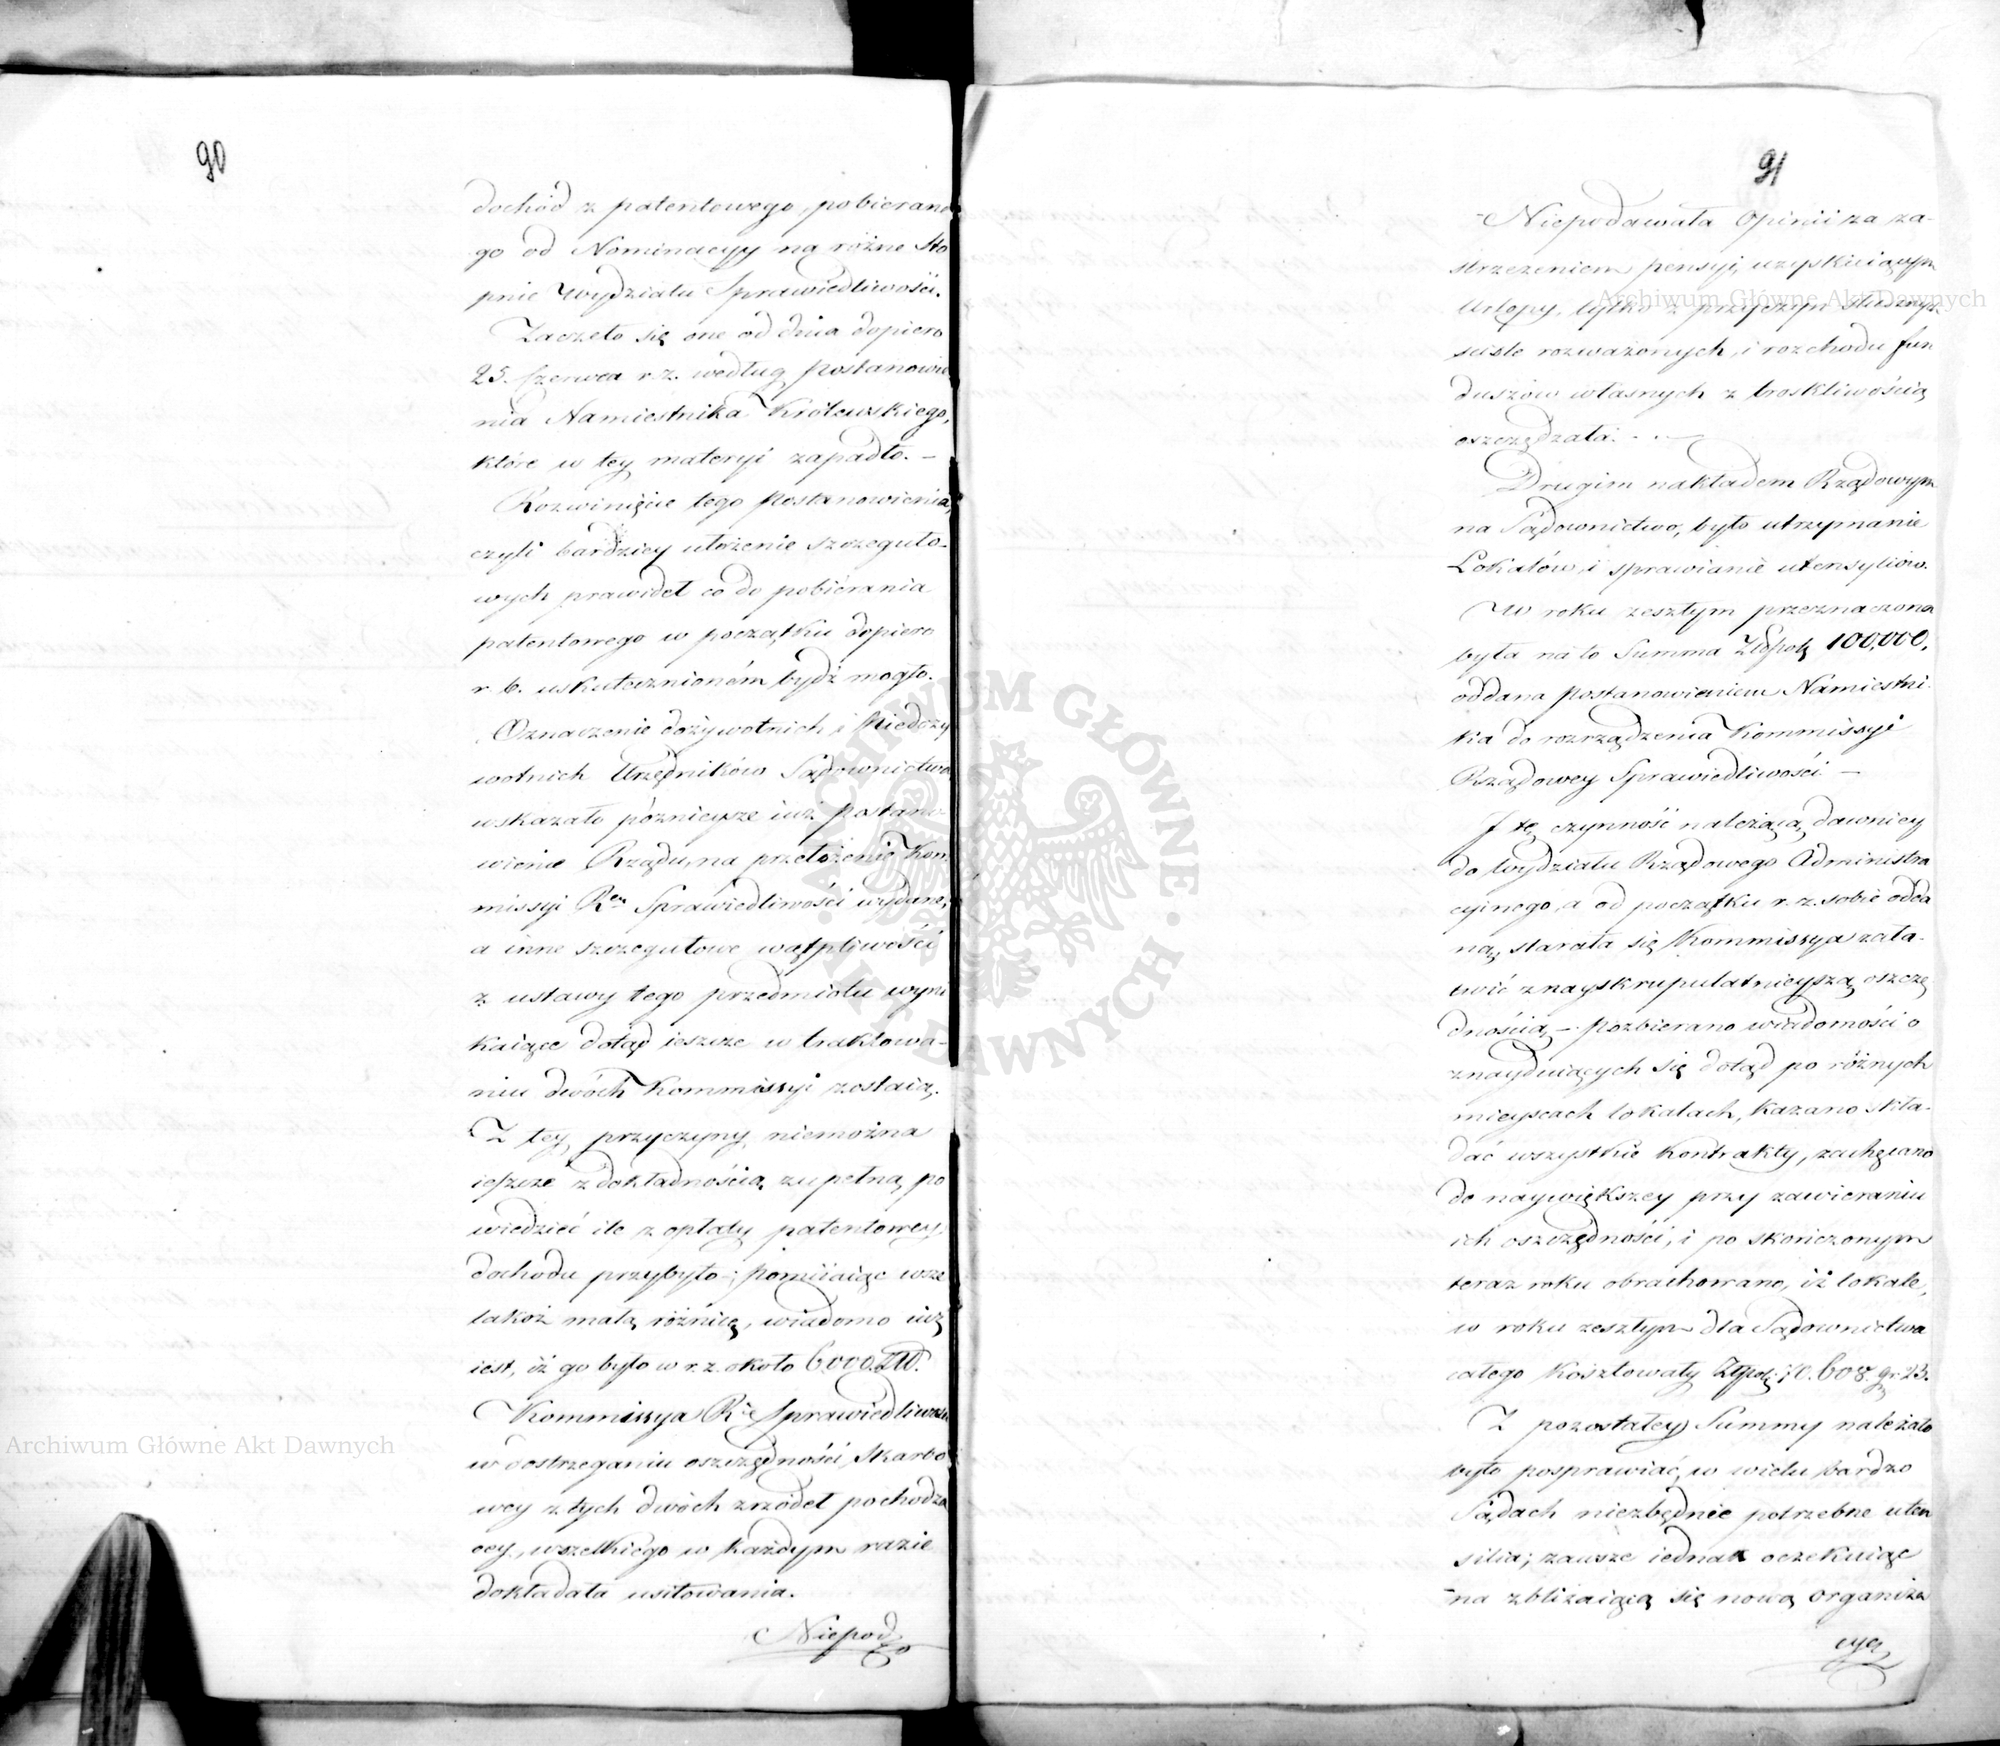 90
dochód z patentowego, pobierane
go od Nominacyy na różne Sto
pnie Wydziału Sprawiedliwości.
Zaczęło się one od dnia dopiero
25. Czerwca r.z. według Postanowie
nia Namiestnika Królewskiego,
które w tey materyi zapadło. –
Rozwinięcie tego Postanowienia,
czyli bardziey ułożenie szczeguło-
wych prawideł co do pobiérania
patentowego w początku dopiero
r. b. uskutecznioném bydź mogło.
Oznaczenie dożywotnich i Niedoży
wotnich Urzędników Sądownictwa
wskazało późnieysze iuż Postano
wienie Rządu, na przełożenie Kom
missyi Rey Sprawiedliwości wydane,
a inne szczegułowe wątpliwości
z ustawy tego przedmiotu wyni
kaiące dotąd ieszcze w traktowa-
niu dwóch Kommissyi zostaią.
Z tey przyczyny niemożna
ieszcze z dokładnością zupełną po
wiedzieć ile z opłaty patentowey
dochodu przybyło; pomiiaiąc wsze
lakoż małą różnicę, wiadomo iuż
iest, iż go było w r. z. około 6000. Złł.
Kommissya R. Sprawiedliwości
w dostrzeganiu oszczędności Skarbo
wey z tych dwóch źrzódeł pochodzą
cey, wszelkiego w każdym razie
dokładała usiłowania.
Niepod
91
Niepodawała Opinii za za-
strzeżeniem pensyi, uzyskuiącym
Urlopy, tylko z przyczyn słusznych
ściśle rozważonych, i rozchodu fun
duszów własnych z troskliwością
oszczędzała. –
Drugim nakładem Rządowym
na Sądownictwo, było utrzymanie
Lokalów, i sprawianie utensyliów.
W roku zeszłym przeznaczona
była na to Summa Złłpolł 100,000,
oddana Postanowieniem Namiestni
ka do rozrządzenia Kommissyi
Rządowey Sprawiedliwości –
I tę czynność należącą dawniey
do Wydziału Rządowego Administra
cyinego, a od początku r. z. sobie odda
ną, starała się Kommissya zała-
twić z nayskrupulatnieyszą oszczę
dnością. – Pozbierano wiadomości o
znayduiących się dotąd po różnych
mieyscach lokalach, kazano skła-
dać wszystkie Kontrakty, zachęcano
do naywiększey przy zawieraniu
ich oszczędności, i po skończonym
teraz roku obrachowano, iż lokale,
w roku zeszłym dla Sądownictwa
całego kosztowały Złpol: 70.608. gr. 23.
Z pozostałey Summy należało
było posprawiać, w wielu bardzo
Sądach niezbędnie potrzebne uten
silia; zawsze iednak oczekuiąc
na zbliżaiącą się nową organiza
cyą
Archiwum Główne Akt Dawnych
Archiwum Główne Akt Dawnych
ARCHIWUM GŁÓWNE AKT DAWNYCH